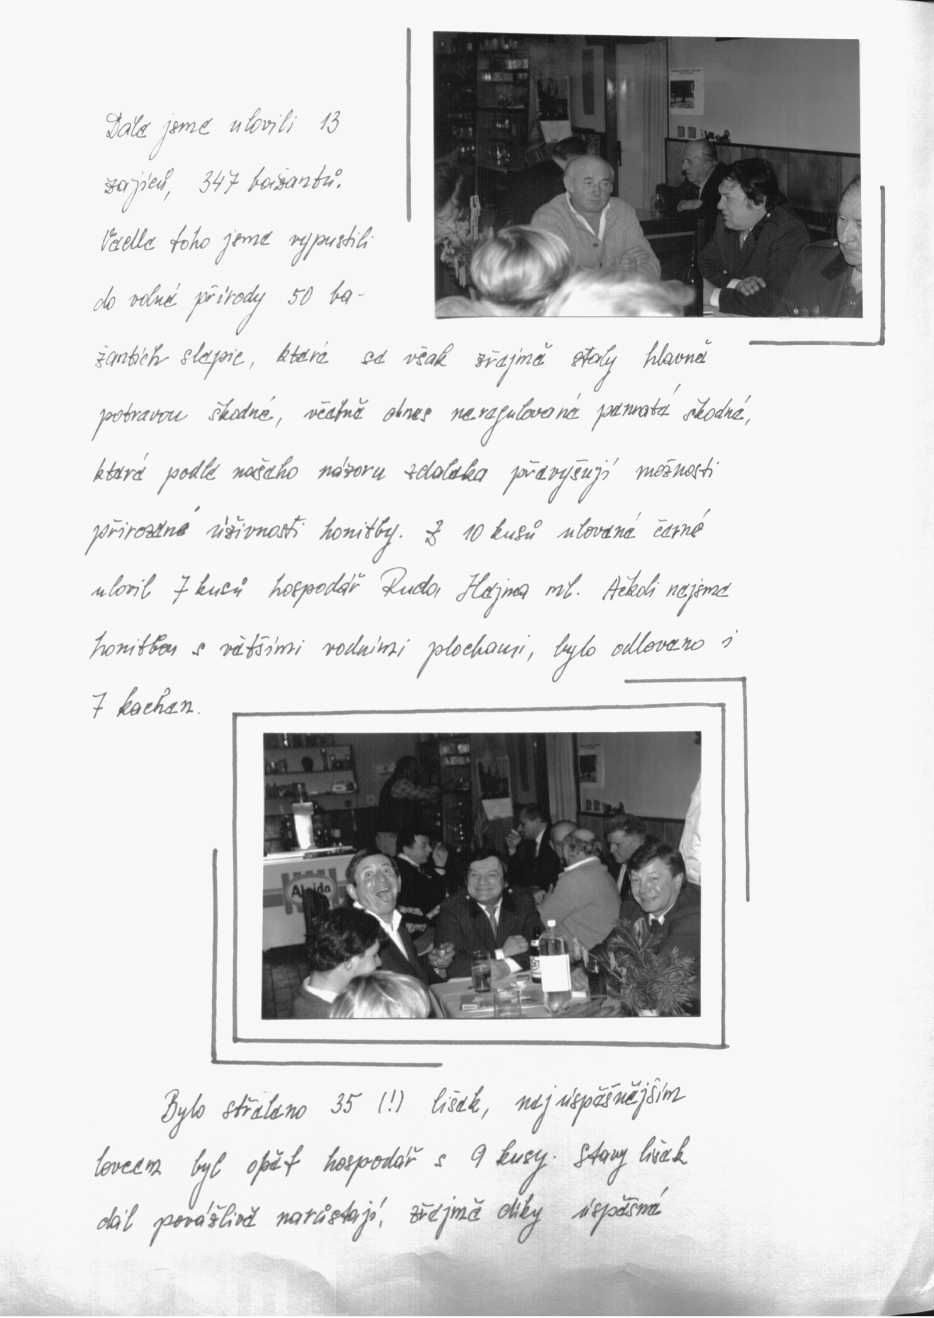 Dále jsme ulovili 13
zajíců, 347 bažantů.
Vedle toho jsme vypustili
do volné přírody 50 ba-
žantích slepic, které se však zřejmě staly hlavně
potravou škodné, včetně dnes neregulované pernaté škodné,
která podle našeho názoru zdaleka převyšují možnosti
přirozené úživnosti honitby. Z 10 kusů ulovené černé
ulovil 7 kusů hospodář Ruda Hejma ml. Ačkoli nejsme
honitbou s většími vodními plochami, bylo odloveno i
7 kachen.
Bylo střeleno 35 (!) lišek, nejúspěšnějším
lovcem byl opět hospodář s 9 kusy. Stavy lišek
dál povážlivě narůstají, zřejmě díky úspěšné